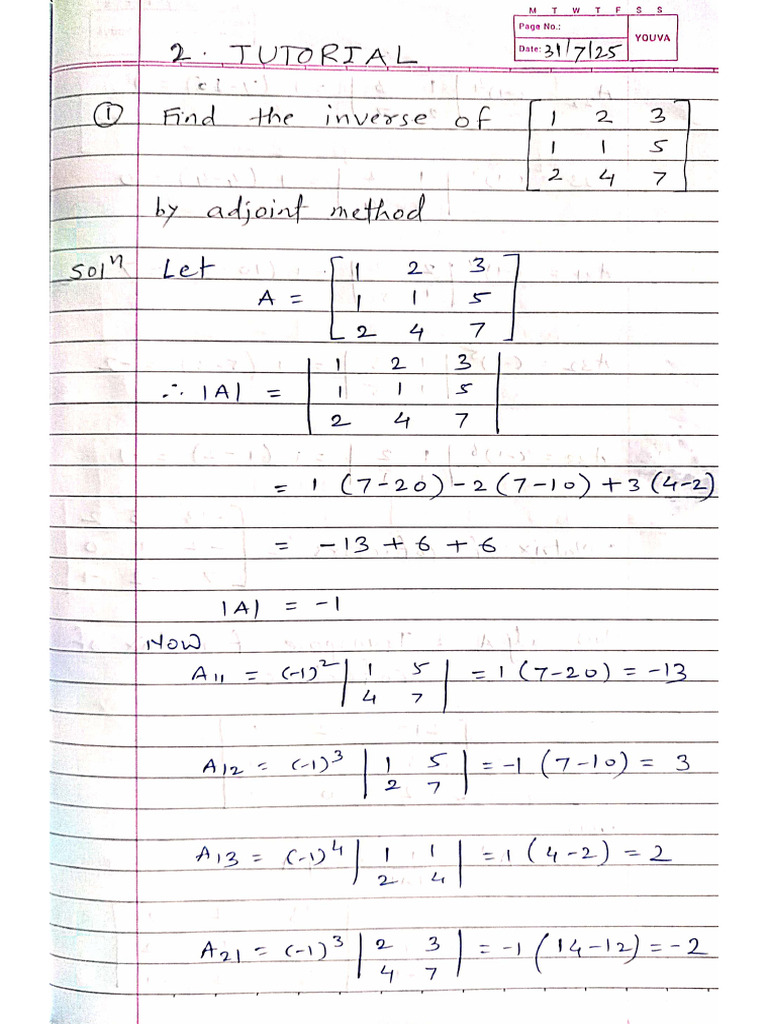 M T W T F S S
Page No.:
Date: 31/7/25 YOUVA
2. TUTORIAL
① Find the inverse of [1 2 3
1 1 5
2 4 7]
by adjoint method
Solⁿ Let
A = [1 2 3
1 1 5
2 4 7]
∴ |A| = |1 2 3
1 1 5
2 4 7|
= 1 (7-20) -2 (7-10) +3 (4-2)
= -13 + 6 + 6
|A| = -1
Now
A₁₁ = (-1)² |1 5
4 7| = 1 (7-20) = -13
A₁₂ = (-1)³ |1 5
2 7| = -1 (7-10) = 3
A₁₃ = (-1)⁴ |1 1
2 4| = 1 (4-2) = 2
A₂₁ = (-1)³ |2 3
4 7| = -1 (14-12) = -2